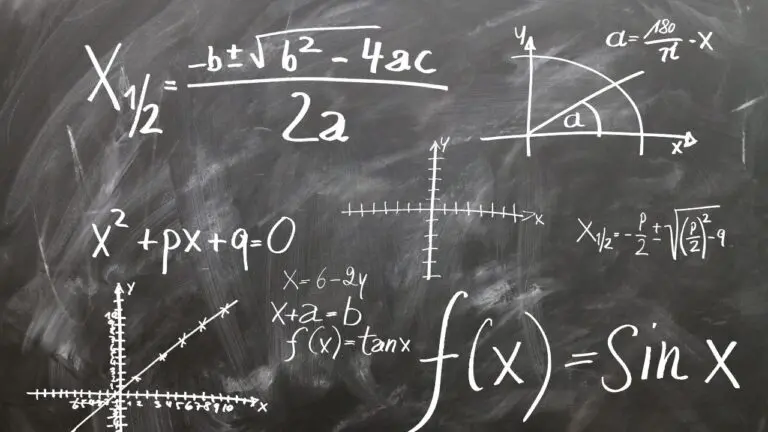 X1/2 = -b ± √b² - 4ac / 2a
y
a = 180/π - X
a
x
y
x
x² + px + q = 0
X1/2 = -p/2 ± √(p/2)² - q
X = 6 - 2y
X + a = b
f(x) = tan x
f(x) = Sin X
y
x